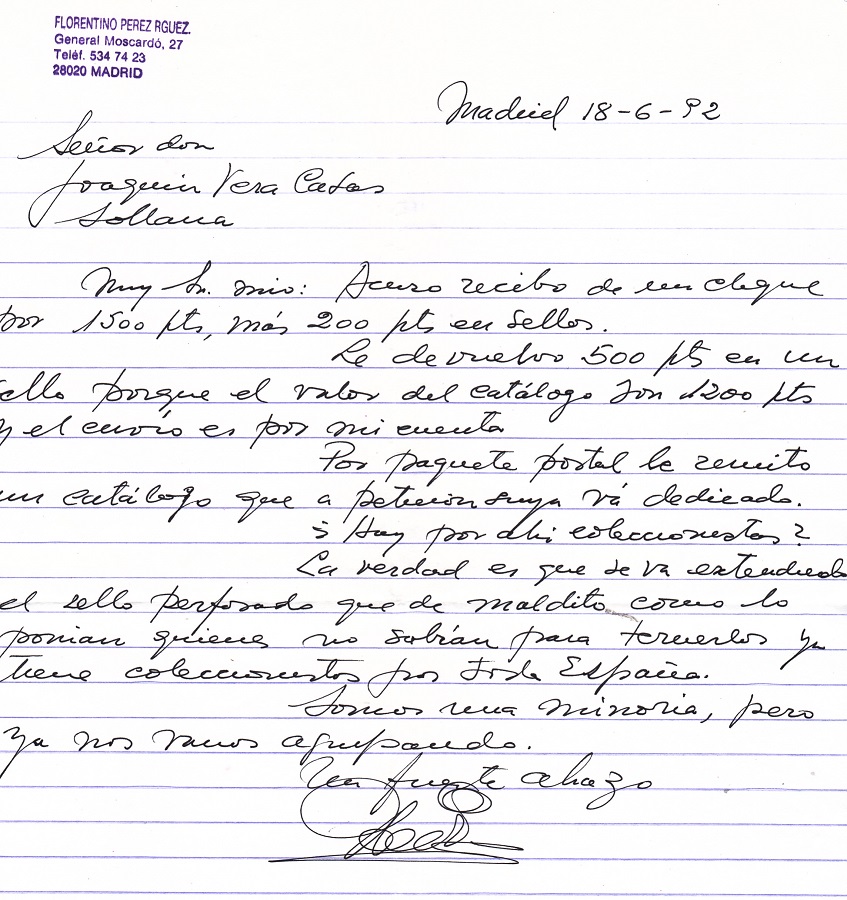 FLORENTINO PEREZ RGUEZ.
General Moscardó, 27
Teléf. 534 74 23
28020 MADRID
Madrid 18-6-92
Señor don
Joaquin Vera Casas
Sollana
Muy Sr. mio: Acuso recibo de un cheque
por 1500 pts, más 200 pts en sellos.
Le devuelvo 500 pts en un
sello porque el valor del catálogo son 1200 pts
y el envío es por mi cuenta
Por paquete postal le remito
un catálogo que a peticion suya vá dedicado.
¿Hay por ahi coleccionistas?
La verdad es que se va extendiendo
el sello perforado que de maldito como lo
ponian quienes no sabían para tenerlos ya
tiene coleccionistas por toda España.
Somos una minoria, pero
ya nos vamos agrupando.
Un fuerte abrazo